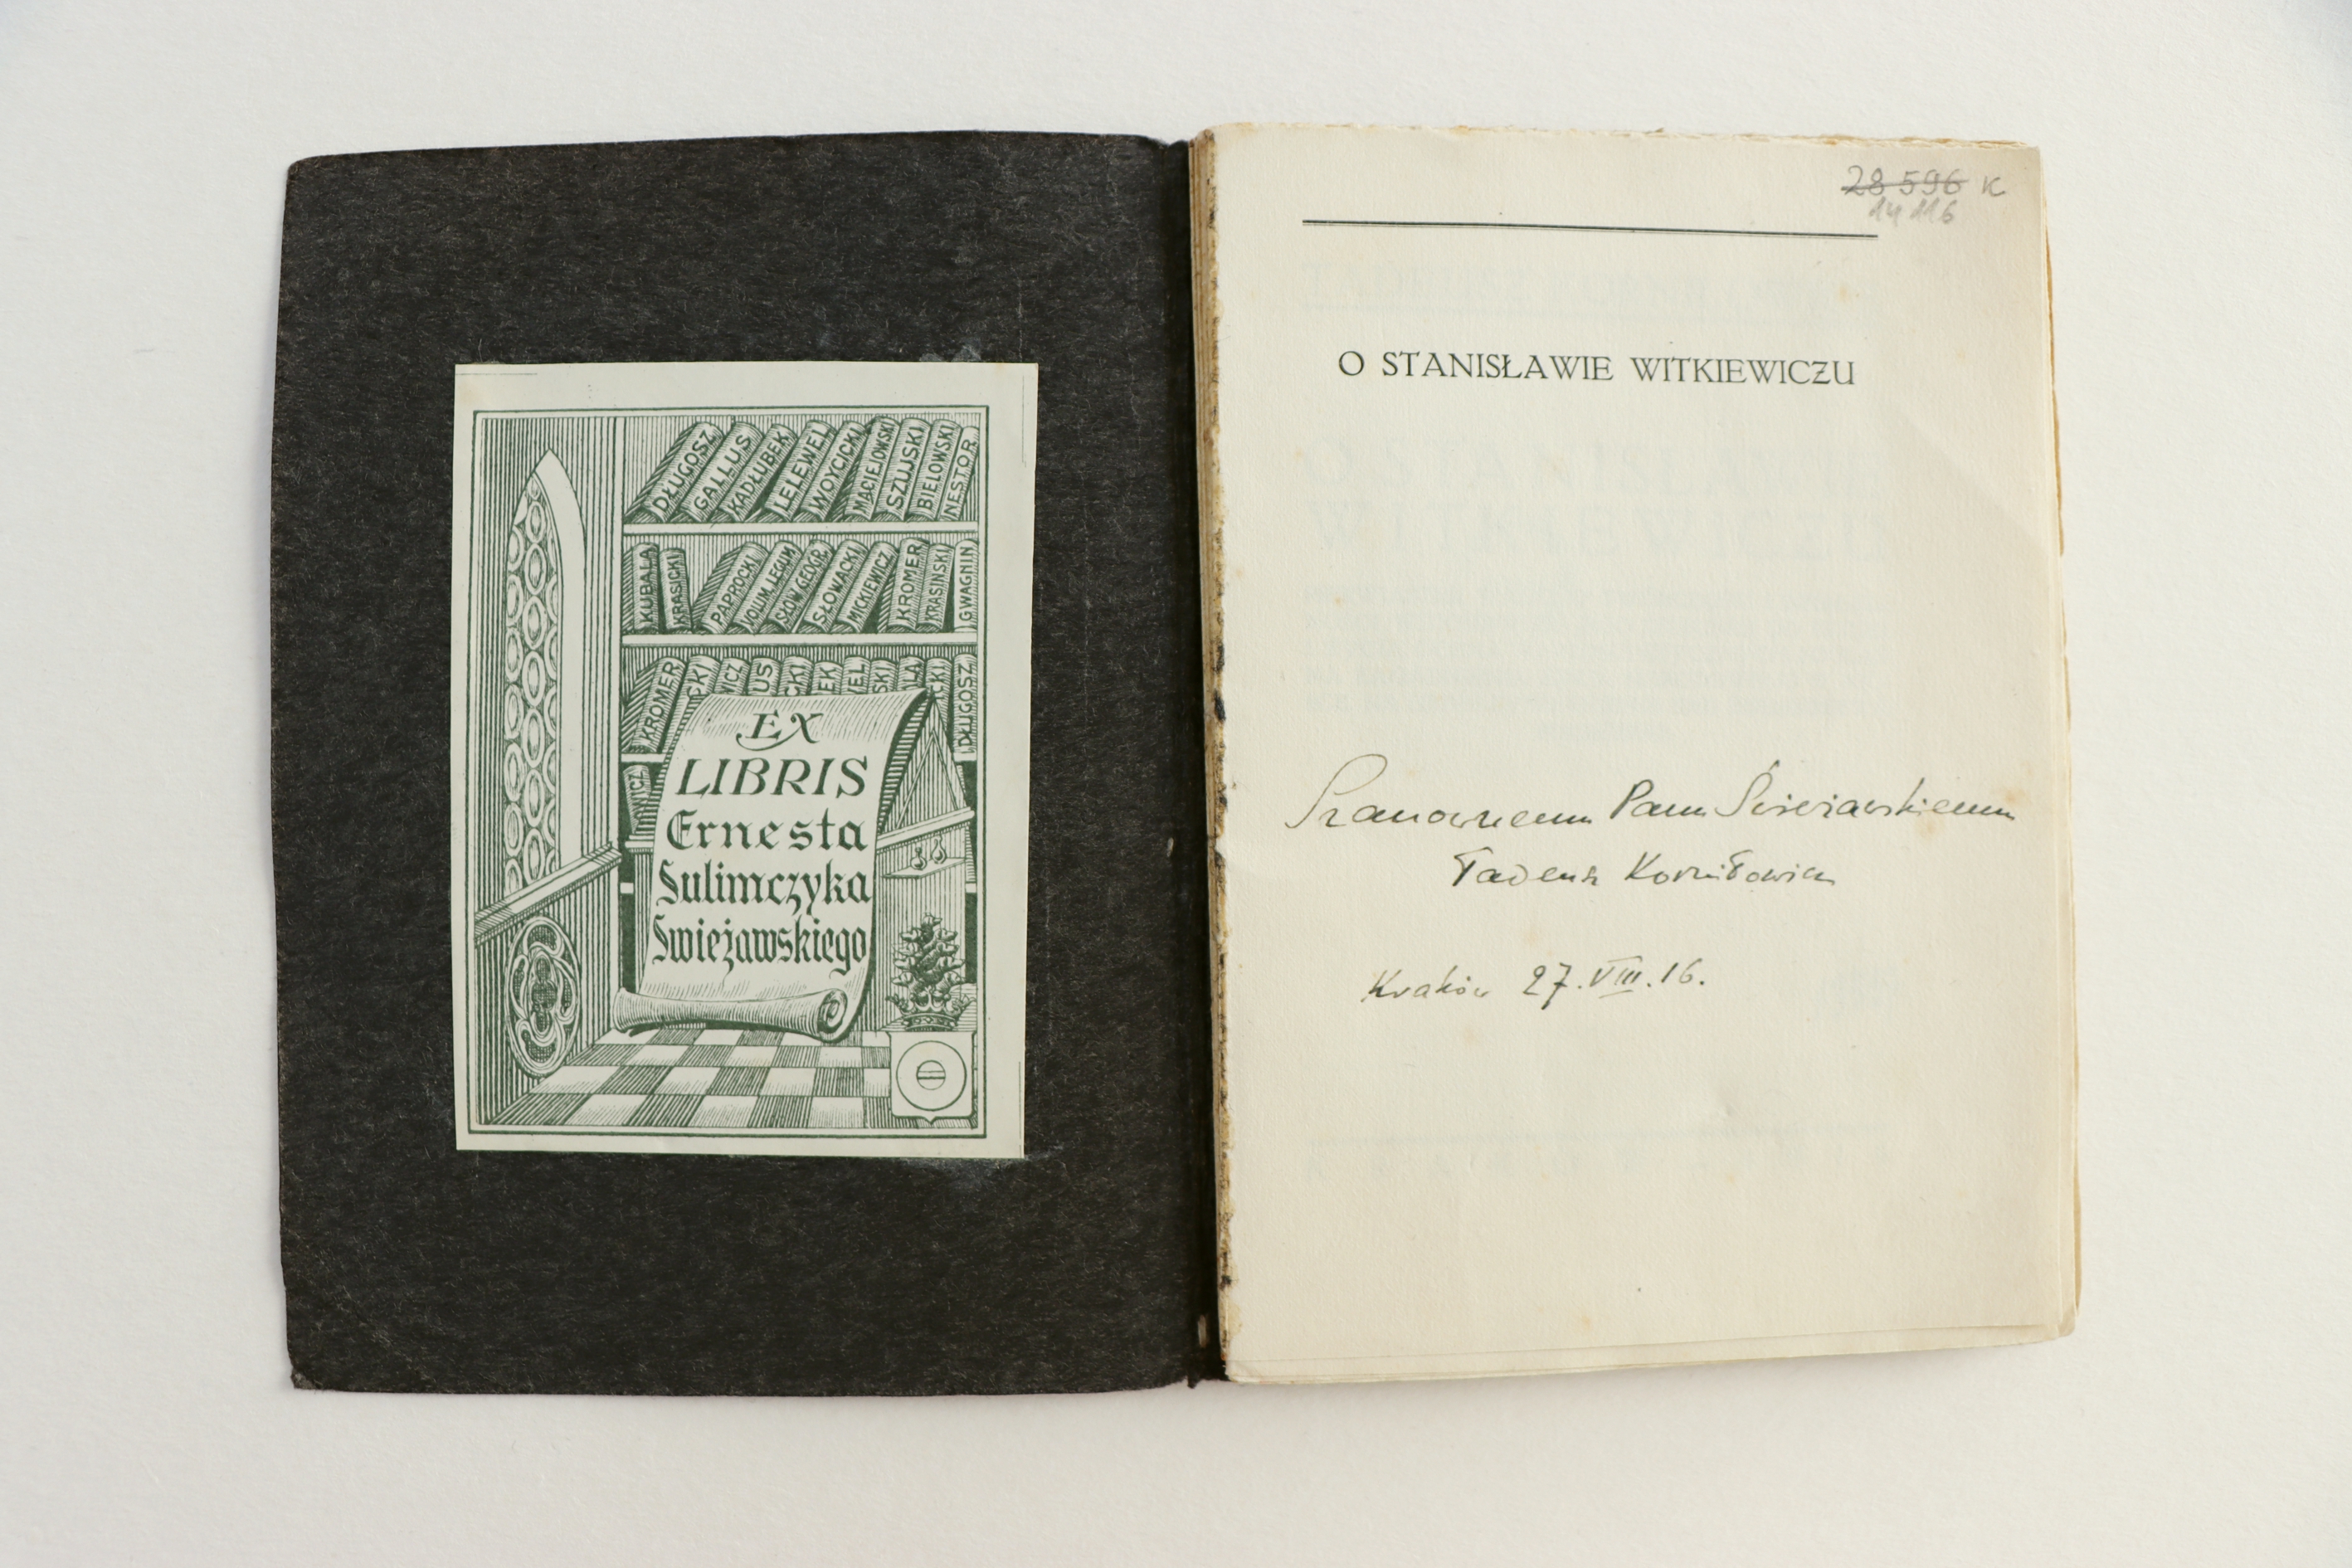 DŁUGOSZ
GALLUS
KADŁUBEK
LELEWEL
WOYCICKI
MACIEJOWSKI
SZUJSKI
BIELOWSKI
NESTOR
KUBALA
KRASICKI
PAPROCKI
VOLUM. LEGUM
SŁOW. GEOGR.
SŁOWACKI
MICKIEWICZ
KROMER
KRASIŃSKI
GWAGNIN
KROMER
CKI
WICZ
US
CKI
EK
EL
SKI
ŁA
CKI
DŁUGOSZ
OWICZ
EX
LIBRIS
Ernesta
Sulimczyka
Świeżawskiego
28 596 K
14 116
O STANISŁAWIE WITKIEWICZU
Szanownemu Panu Świeżawskiemu
Tadeusz Korniłowicz
Kraków 27.VIII.16.